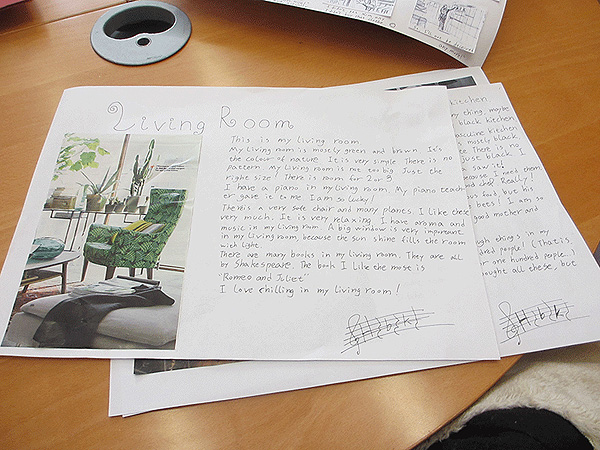 Living Room
This is my living room
My living room is mostly green and brown. It's
the colour of nature. It is very simple. There is no
pattern. My living room is not too big. Just the
right size! There is room for 2 or 3.
I have a piano in my living room. My piano teach
er gave it to me. I am so lucky!
There is a very safe chair and many plants. I like these
very much. It is very relaxing. I have aroma and
music in my living room. A big window is very important
in my living room, because the sun shine fills the room
with light.
There are many books in my living room. They are all
by Shakespeare. The book I like the most is
"Romeo and Juliet"
I love chilling in my living room!
kitchen
ry thing, maybe
black kitchen
masculine kitchen
mostly black
There is no
just black. I
saw it!
because I need them
and chef. Really!
fork, but his
bets! I am so
good mother and
ugh thing's in my
and people! (That is,
r one hundred people.)
ought all these, but